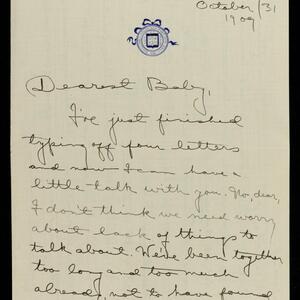 October/31
1909
Dearest Baby,
I've just finished
typing off four letters
and now I can have a
little talk with you. No, dear,
I don't think we need worry
about lack of things to
talk about. We've been together
too long and too much
already, not to have found